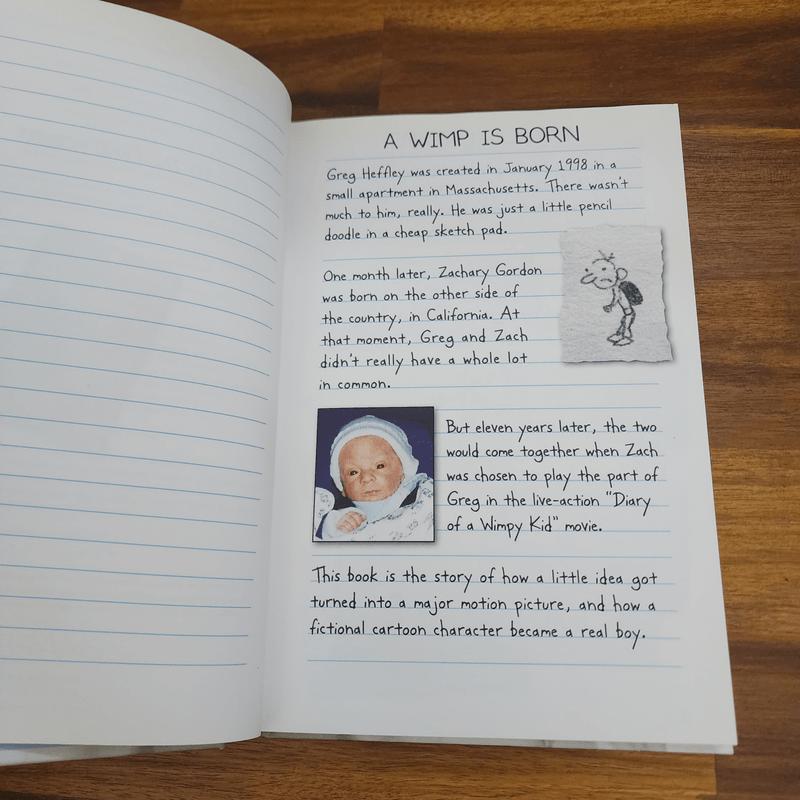 A WIMP IS BORN
Greg Heffley was created in January 1998 in a
small apartment in Massachusetts. There wasn't
much to him, really. He was just a little pencil
doodle in a cheap sketch pad.
One month later, Zachary Gordon
was born on the other side of
the country, in California. At
that moment, Greg and Zach
didn't really have a whole lot
in common.
But eleven years later, the two
would come together when Zach
was chosen to play the part of
Greg in the live-action "Diary
of a Wimpy Kid" movie.
This book is the story of how a little idea got
turned into a major motion picture, and how a
fictional cartoon character became a real boy.